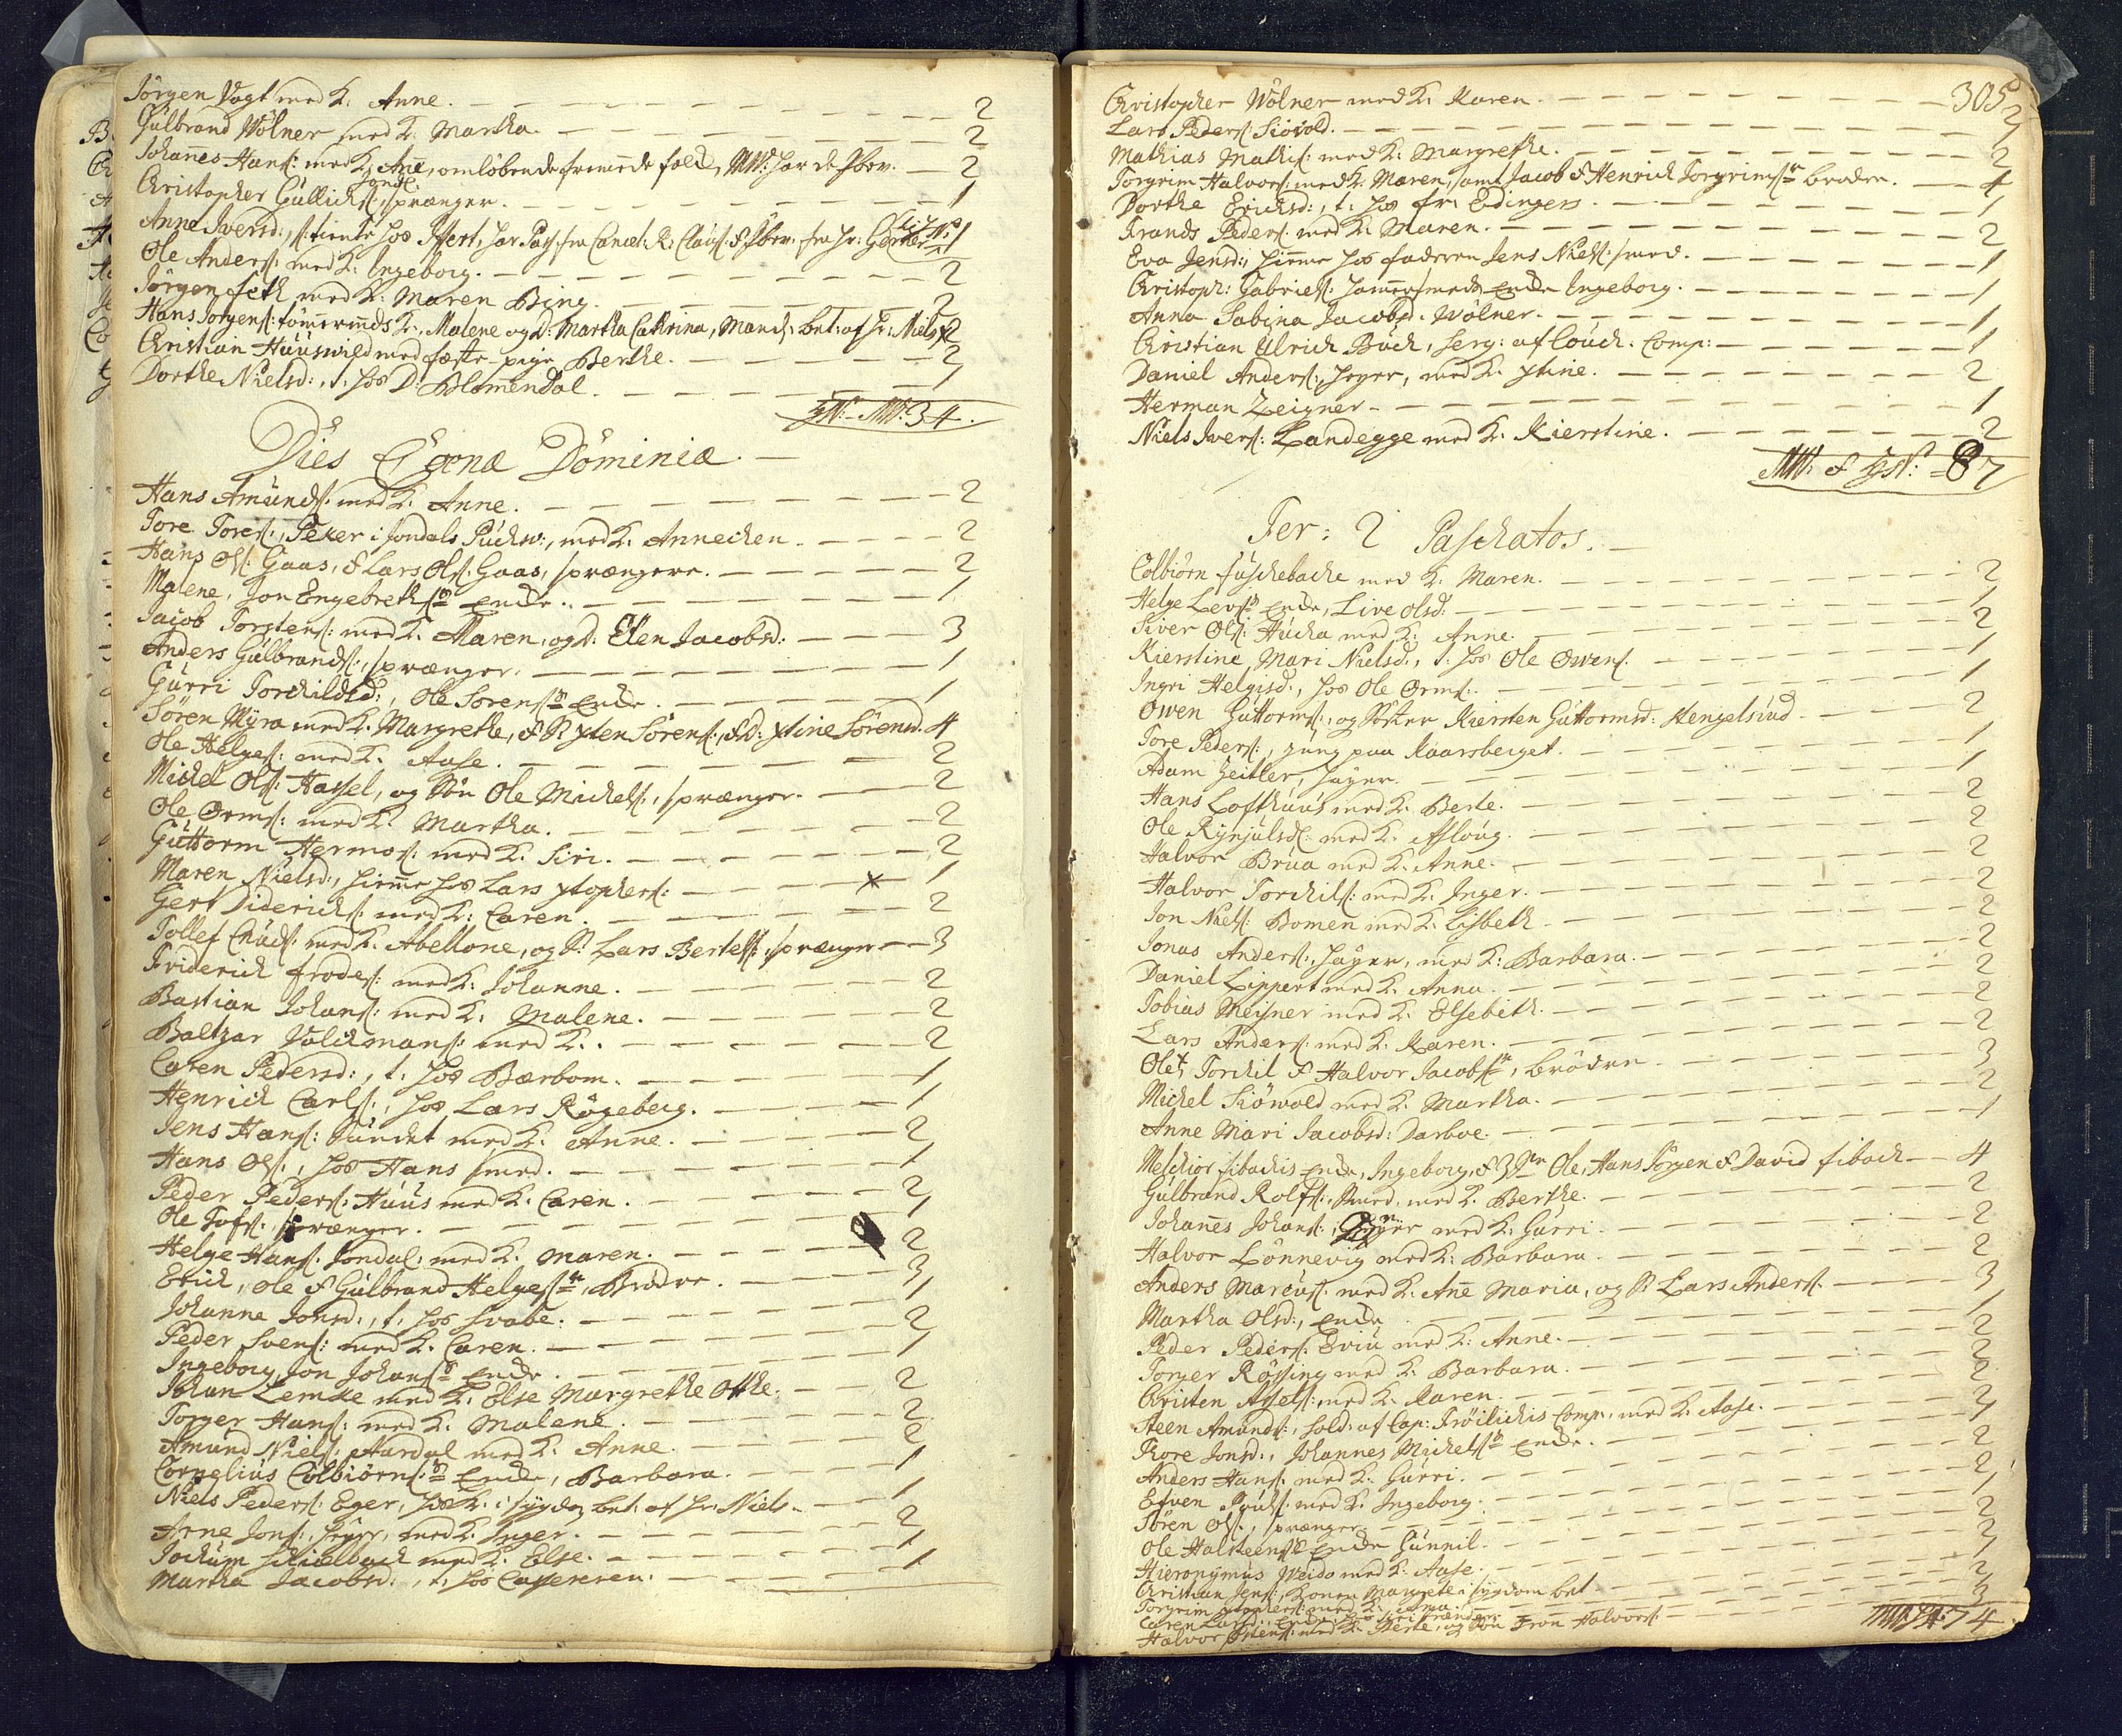 Jörgen Vogt med K: Anne. 2
Gúlbrand Wölner med K: Martha. 2
Johannes Hans: med K: Ane, omlöbende fremede folck, 2
Christopher Gúllichs: sprænger. 1
Anne Iversd:, tiente hos 1
Ole Anders: med K: Ingeborg. 2
Jörgen Feth med K: Maren Bing. 2
Hans Jorgens: tömermds K:, Malene og D: Martha Cathrina, 2
Christian Húúswild med fæste pige Berthe. 2
Dorthe Nielsd:, t: hos D: Blomendal. 1
34.
Dies Coenæ Dominicæ
Hans Amúnds: med K: Anne. 2
Tore Tores:, Peker i Jondals Púckw:, med K: Annecken. 2
Hans Ols: Gaas, & Lars Ols: Gaas, sprængere. 2
Malene, Jon Engebrethss Encke. 1
Jacob Torstens: med K: Maren, og D: Elen Jacobsd: 3
Anders Gúlbrands:, sprænger. 1
Gúrri Torchildsd:, Ole Sorens: Encke. 1
Sören Myra med K: Margrethe, & S: xsten Sörens:, & D: xstine Sörensd. 4
Ole Helges: med K: Aase. 2
Michel Ols: Hassel, og Sön Ole Michels:, sprænger. 2
Ole Orms: med K: Martha. 2
Gúttorm Hermos: med K: Siri. 2
Maren Nielsd:, hieme hos Lars xstophers: x 1
Gert Diderichs: med K: Caren. 2
Tollef Cnúds: med K: Abellone, og S: Lars Bertels:, sprænger 3
Friderich Frodes: med K: Johanne. 2
Bastian Johans: med K: Malene. 2
Baltzar Volckmans: med K:. 2
Caren Pedersd:, t: hos Bærbom. 1
Henrich Carls:, hos Lars Rögeberg. 1
Jens Hans: Súndet med K: Anne. 2
Hans Ols:, hos Hans smed. 1
Peder Peders: Húús med K: Caren. 2
Ole Tofs:, sprænger. 1
Helge Hans: Jondal: med K: Maren. 2
Erich, Ole & Gúlbrand Helgess:, Brödre. 3
Johanne Jonsd:, t: hos Svabe. 1
Peder Svens: med K: Caren. 2
Ingeborg, Jon Johans: Encke. 1
Johan Lemke med K: Else Margrethe Otthe. 2
Torger Hans: med K: Malene. 2
Amúnd Niels: Aardal med K: Anne. 2
Cornelius Colbiörns: Encke, Barbara. 1
Niels Peders: Eger, hos K: i sygdom bet: af Hr: Niels 1
Arne Jons:, heyer, med K: Inger. 2
Jochúm Schielbach med K: Else. 1
Martha Jacobsd:, t: hos Cassereren. 1
305
Christopher Wölner med K: Karen. 2
Lars Peders: Siövold. 1
Mathias Mathis: med K: Margrethe. 2
Torgrim Halvors: med K: Maren, samt Jacob & Henrich Torgrims: brodre. 4
Dorthe Erichsd:, t: hos fr: Edingers. 1
Frands Peders: med K: Maren. 2
Eva Jensd:, hieme hos faderen Jens Niels: smed. 1
Christoph: Gabriels: hamersmeds Encke Ingeborg. 1
Anna Sabina Jacobsd: Wölner. 1
Christian Ulrich Búch, Serg: af Coúch: Comp: 1
Daniel Anders:, heyer, med K: xstine. 2
Herman Zeigner. 1
Niels Ivers: Landegge med K: Kierstine. 2
87
Fer: 2 Paschatos.
Colbiörn fúschebache med K: Maren. 2
Helge Levs: Encke, Live Olsd: 1
Siver Ols: Húcka med K: Anne. 2
Kierstine Mari Nielsd:, t: hos Ole Owens. 1
Ingri Helgisd:, hos Ole Orms: 1
Owen Gúttorms:, og Söster Kiersten Gúttormsd: Hengelsúd 2
Tore Peders:, gúng paa Kaarsberget. 1
Adam Zeitler, heyer. 1
Hans Lofthúús med K: Berte. 2
Ole Rynjúls: med K: Asloúg. 2
Halvor Brúa med K: Anne. 2
Halvor Torchils: med K: Inger. 2
Jon Niels: Bomen med K: Lisbeth 2
Jonas Anders:, heyer, med K: Barbara. 2
Daniel Lippert med K: Anna. 2
Tobias Meisner med K: Elsebeth. 2
Lars Anders: med K: Karen. 2
Ole, Torchil & Halvor Jacobs:, brödre 3
Michel Siöwold med K: Martha. 2
Anne Mari Jacobsd: Darboe. 1
Melchior fibachis Encke, Ingeborg, & 3 S: Ole, Hans Jörgen & David fibach 4
Gúlbrand Rolfs:, smed, med K: Berthe. 2
Johannes Johans:, med K: Gúrri. 2
Halvor Lönnevig med K: Barbara. 2
Anders Marcús: med K: Ane Maria, og S: Lars Anders: 3
Martha Olsd:, Encke 1
Peder Peders: Eviú med K: Anne. 2
Torger Rössing med K: Barbara. 2
Christen Assels: med K: Karen. 2
Steen Amúnds:, sold: af Cap: Fröilichis Comp:, med K: Aase. 2
Thore Jonsd:, Johannes Michels: Encke. 1
Anders Hans: med K: Gúrri. 2
Efven med K: Ingeborg. 2
Sören Ols:, sprænger. 1
Ole Halsteens: Encke Gúnnil. 1
Hieronymus Weido med K: Aase. 2
Christian Jens:, konen Margrete i sygdom bet. 1
Torgrim xstophers: med K: Anna. 2
Caren Larsd:, Encke, hos
Halvor Ostens: med K: Berte, og Sön Tron Halvors: 3
74